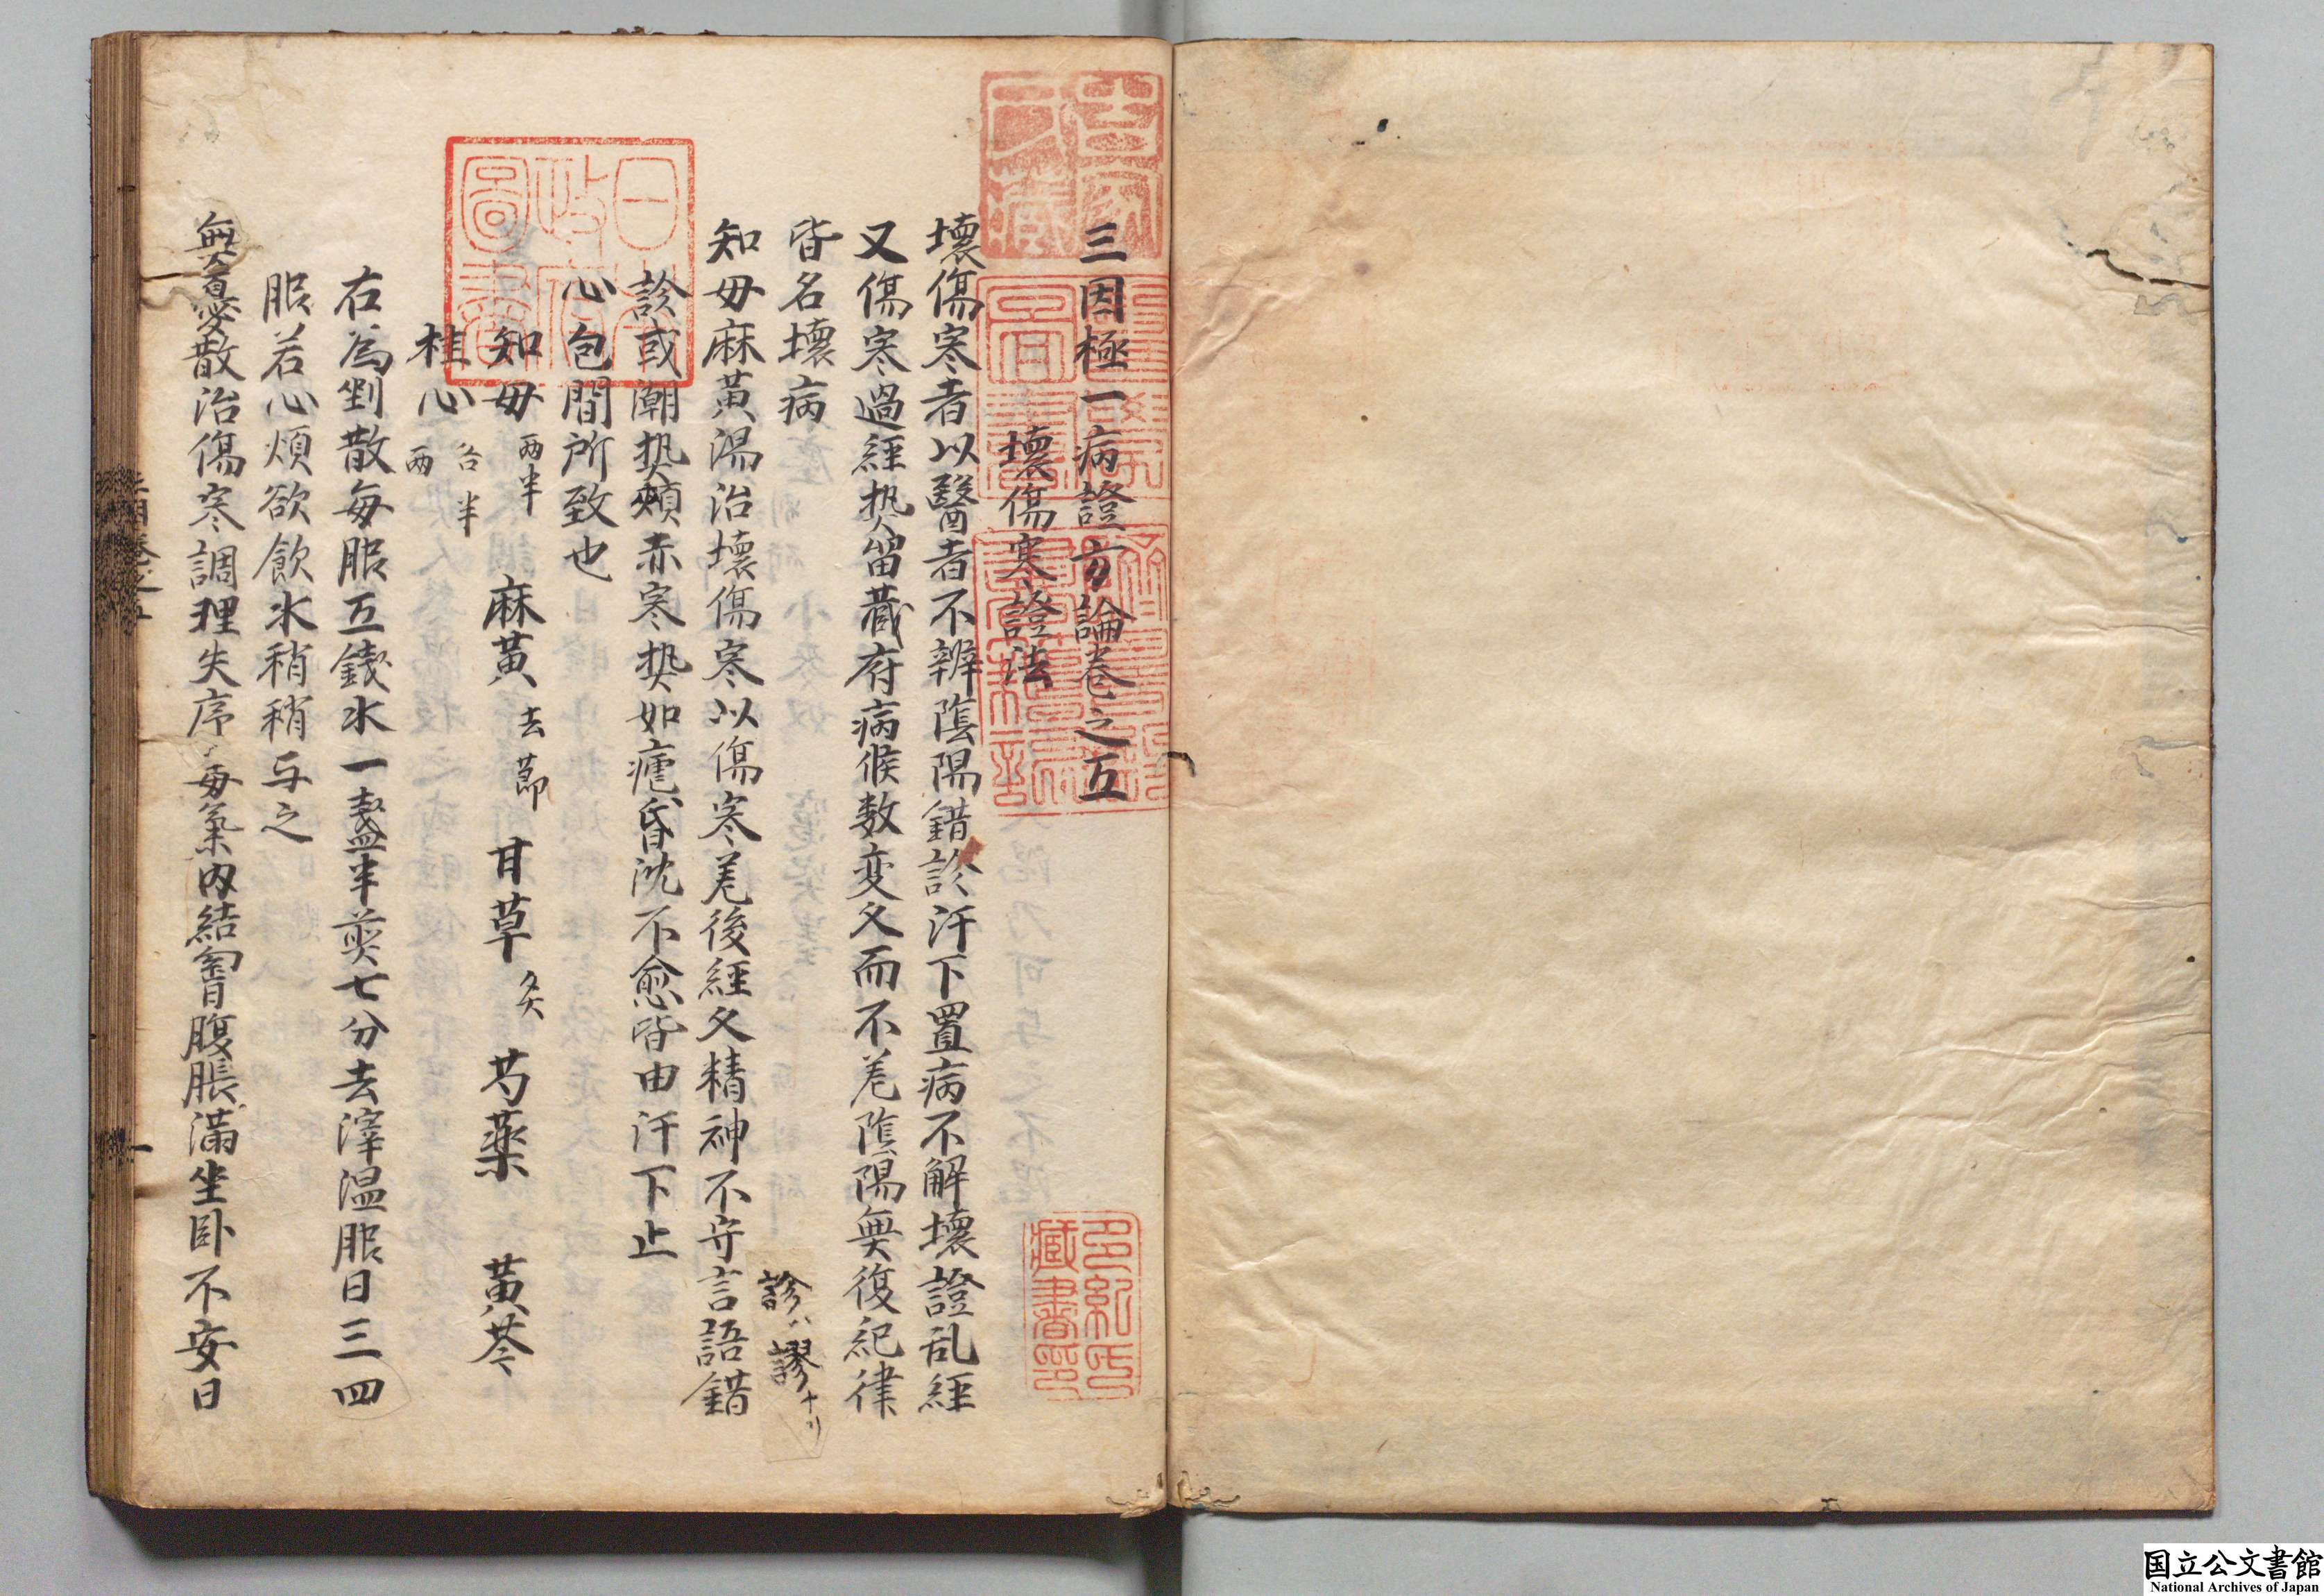 三因極一病證方論卷之五
壞傷寒證法
壞傷寒者以醫者不辨陰陽錯診汗下置病不解壞證乱經
又傷寒過經热留蔵府病候数变久而不差陰陽無復紀律
皆名壞病
診ハ謬ナリ
知母麻黃湯治壞傷寒以傷寒差後經久精神不守言語錯
診或潮热頰赤寒热如瘧昏沈不愈皆由汗下止
心包間所致也
知母 两半 麻黃 去莭 甘草 炙 芍薬 黃芩
桂心 各半两
右為剉散每服五錢水一盞半煎七分去滓温服日三四
服若心煩欲飲水稍稍与之
無名散治傷寒調理失序毒氣内結胷腹脹滿坐卧不安日
日本政府圖書
多紀氏藏書印
国立公文書館
National Archives of Japan